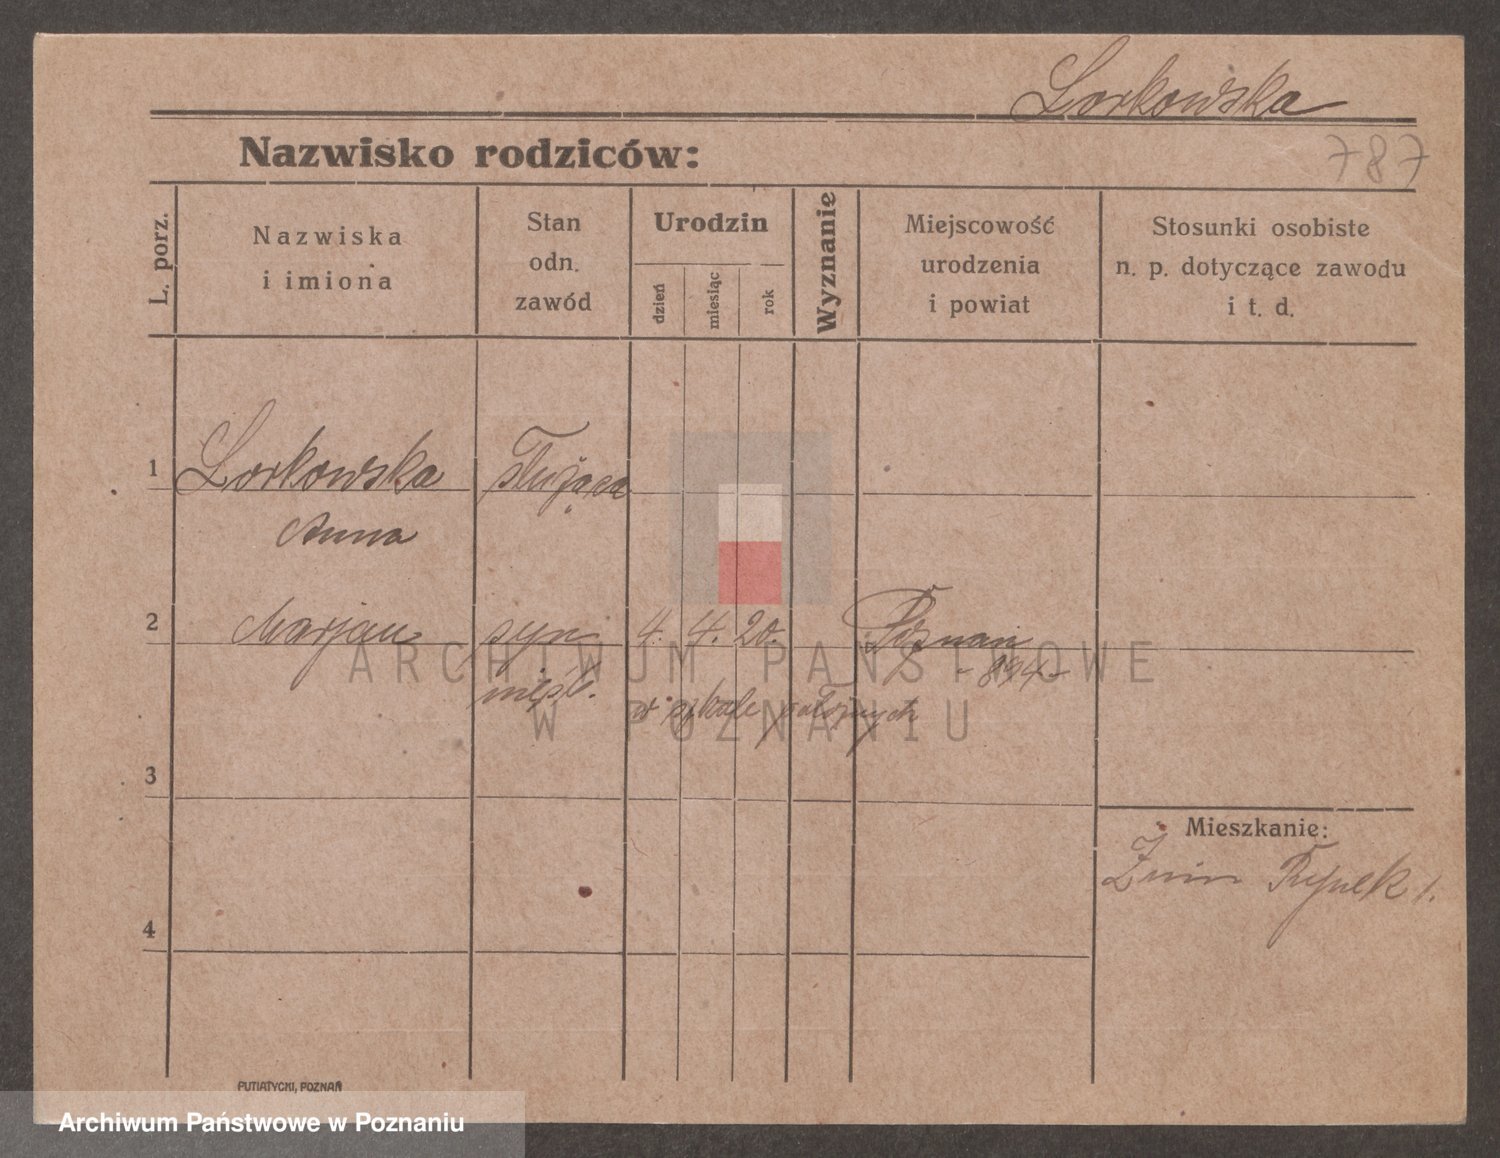 Lorkowska
787
Nazwisko rodziców:
L. porz.
Nazwiska
i imiona
Stan
odn.
zawód
Urodzin
dzień
miesiąc
rok
Wyznanie
Miejscowość
urodzenia
i powiat
Stosunki osobiste
n. p. dotyczące zawodu
i t. d.
1 Lorkowska służąca
Anna
2 Marjan syn 4. 4. 20. Poznań
- 894 -
nieśl.
w szkole położnych
ARCHIWUM PAŃSTWOWE
W POZNANIU
3
Mieszkanie:
Żnin Rynek 1.
4
PUTIATYCKI, POZNAŃ
Archiwum Państwowe w Poznaniu